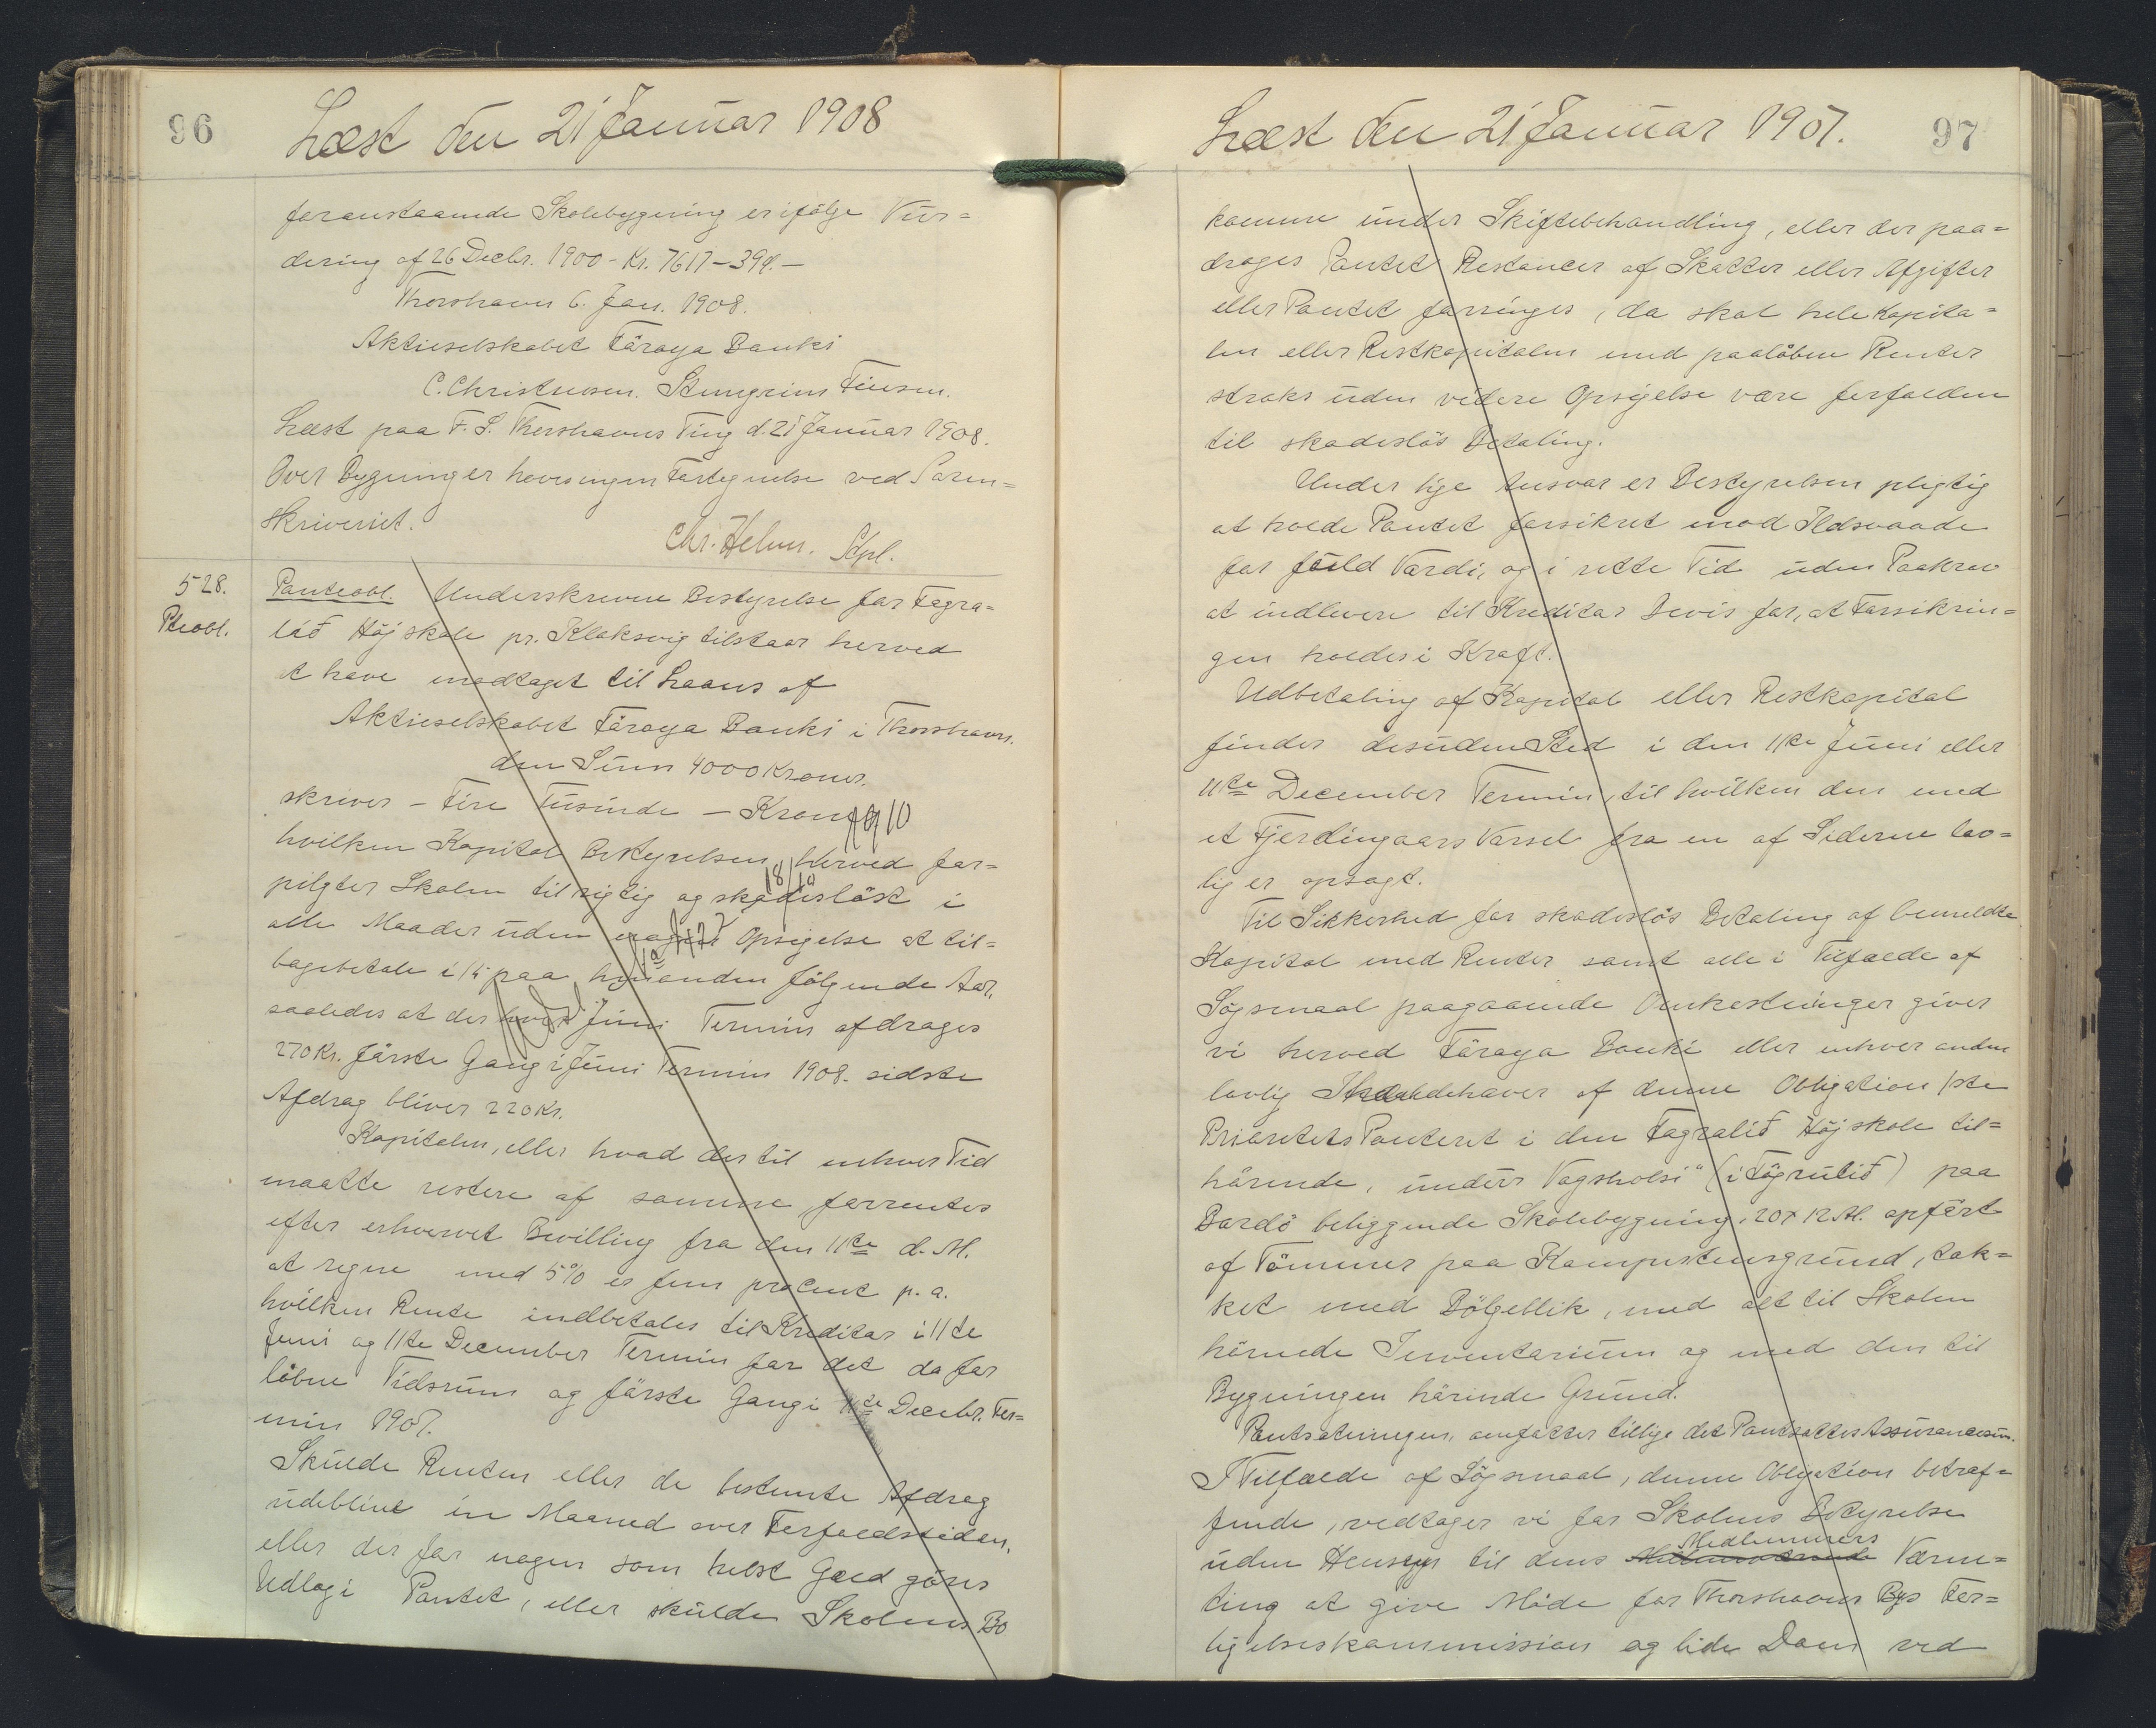 96
Læst den 21 Januar 1908
foranstaaende Skolebygning er ifölge Vur=
dering af 26 Decbr. 1900 - Kr. 7617 - 39 Ø. -
Thorshavn 6. Jan. 1908.
Aktieselskabet Föroya Banki
C. Christensen. Stengrim Finsen.
Læst paa F. S. Thorshavns Ting d. 21 Januar 1908.
Over Bygninger haves ingen Fortegnelse ved Soren=
skriveriet.
Chr. Helms. Kpl.
528.
Pteobl.
Panteobl. Underskrevne Bestyrelse for Fagra=
líð Höjskole pr. Klaksvig tilstaar herved
at have modtaget til Laans af
Aktieselskabet Föroya Banki i Thorshavn.
den Sum 4000 Kroner.
skriver - Fire Tusinde - Kroner
hvilken Kapital Bestyrelsen herved for=
pligter Skolen til rigtig og skadeslöst i
alle Maader uden Opsigelse at til=
bagebetale i 15 paa hinanden fölgende Aar,
saaledes at der hvert Juni Termin afdrages
270 Kr. förste Gang i Juni Termin 1908. sidste
Afdrag bliver 220 Kr.
Kapitalen, eller hvad der til enhver Tid
maatte restere af samme forrentes
efter erhvervet Bevilling fra den 11te d. M.
at regne med 5% er fem procent p. a.
hvilken Rente indbetales til Kreditor i 11te
Juni og 11te December Termin for det da for
löbne Tidsrum og förste Gang i 11te Decbr. Ter=
min 1907.
Skulde Renten eller de bestemte Afdrag
udeblive en Maaned over Forfaldstiden,
eller der for nogen som helst Gæld göres
Udlæg i Pantet, eller skulde Skolens Bo
Læst den 21 Januar 1907.
97
komme under Skiftebehandling, eller der paa=
drages Pantet Restancer af Skatter eller Afgifter
eller Pantet forringes, da skal hele Kapita=
len eller Restkapitalen med paalöbne Renter
straks uden videre Opsigelse være forfalden
til skadeslös Betaling.
Under lige Ansvar er Bestyrelsen pligtig
at holde Pantet forsikret mod Ildsvaade
for fuld Værdi, og i rette Tid uden Paakrav
at indlevere til Kreditor Bevis for, at Forsikrin=
gen holdes i Kraft.
Udbetaling af Kapital eller Restkapital
finder desuden Sted i den 11te Juni eller
11te December Termin, til hvilken den med
et Fjerdingaars Varsel fra en af Siderne lov=
lig er opsagt.
Til Sikkerhed for skadeslös Betaling af bemeldte
Kapital med Renter samt alle i Tilfælde af
Sögsmaal paagaaende Omkostninger giver
vi herved Föroya Banki eller enhver anden
lovlig Ihændehaver af denne Obligation 1ste
Prioritets Panteret i den Fagralíð Höjskole til=
hörende, undir Vagsholsi" (i Fögrulíð) paa
Bordö beliggende Skolebygning, 20 x 12 Al. opfört
af Tömmer paa Kampestensgrund, tæk=
ket med Bölgeblik, med alt til Skolen
hörnede Inventarium og med den til
Bygningen hörende Grund.
Pantsætningen omfatter tillige det Pantsattes Assurancesum.
I Tilfælde af Sögsmaal, denne Obligation betræf=
fende, vedtager vi for Skolens Bestyrelse
uden Hensyn til dens Medlemmers Værne=
ting at give Möde for Thorshavns Bys For=
ligelseskommission og lide Dom ved